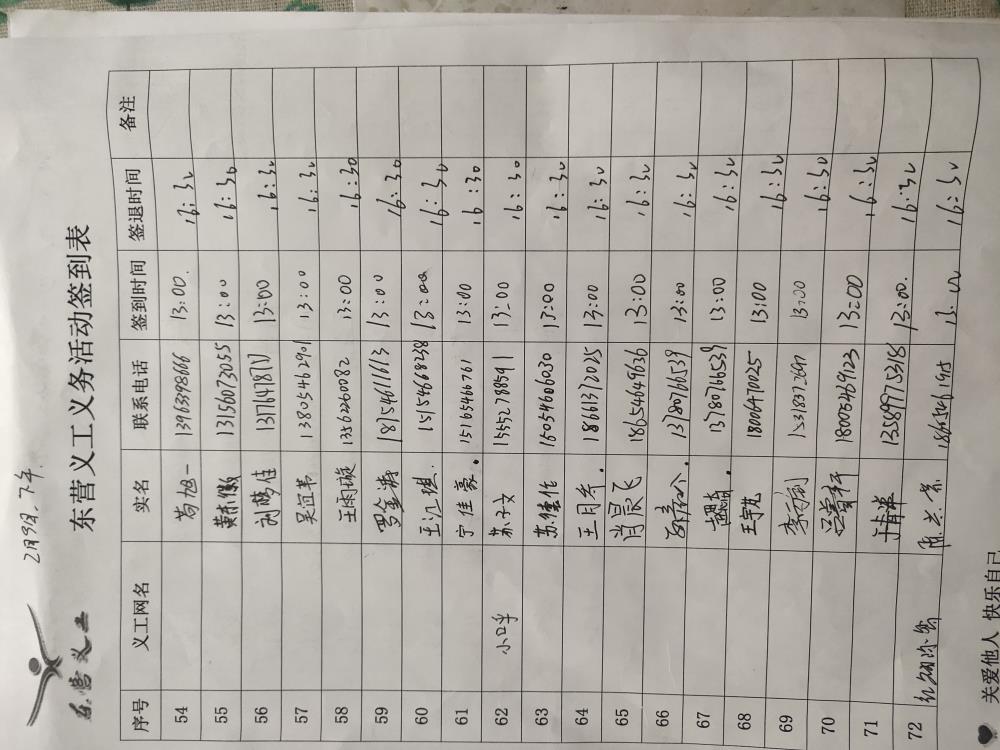 2月9日.下午.
东营义工
东营义工义务活动签到表
序号 义工网名 实名 联系电话 签到时间 签退时间 备注
54 苟旭一 13963398666 13:00. 16:30
55 13156073055 13:00 16:30
56 刘梦佳 13176418717 13:00 16:30
57 13805462901 13:00 16:30
58 王雨璇 13562260082 13:00 16:30
59 罗金涛 18754611613 13:00 16:30
60 王江琪. 15154668238 13:00 16:30
61 宁佳豪. 15165466761 13:00 16:30
62 小口乎 苏子文 15552788591 13:00 16:30
63 苏继伦 15054606030 13:00 16:30
64 王月乔. 18661372025 13:00 16:30
65 肖景飞 18654649636 13:00 16:30
66 13780766539 13:00 16:30
67 13780766539 13:00 16:30
68 王宇凡 18006470025 13:00 16:30
69 13:00 16:30
70 18005469123 13:00 16:30
71 13589975318 13:00. 16:30
72 13:00 16:30
关爱他人 快乐自己